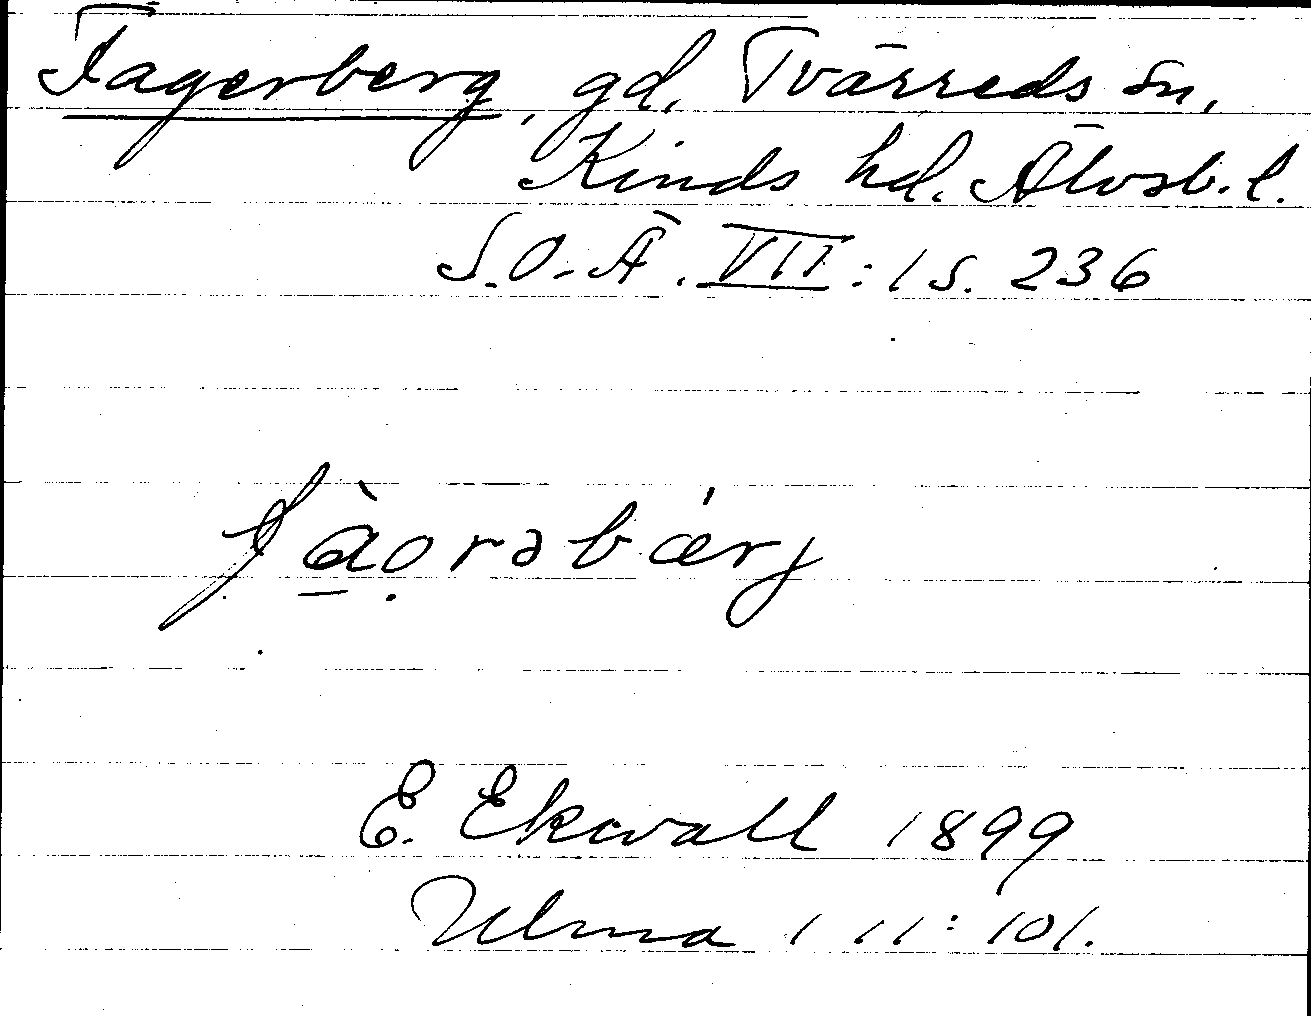 Fagerberg, gd. Tvärreds sn,
Kinds hd. Älvsb. l.
S.O.Ä. VII:1 S. 236
fà̱ọrəbærj
E. Ekwall 1899
Ulma 111:101.